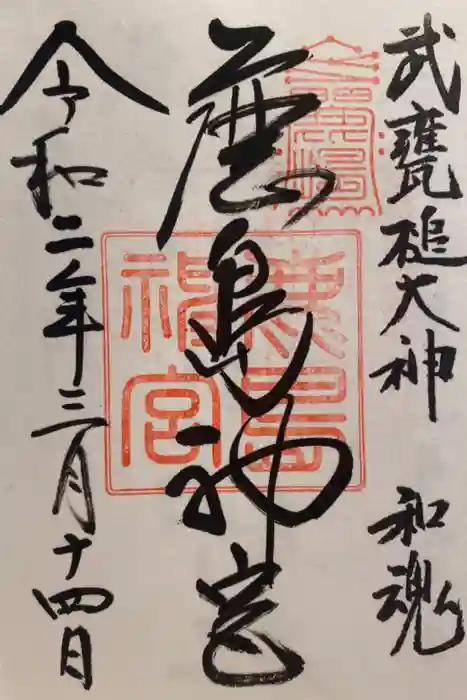 武甕槌大神 和魂
鹿島神宮
鹿島神宮
令和二年三月十四日